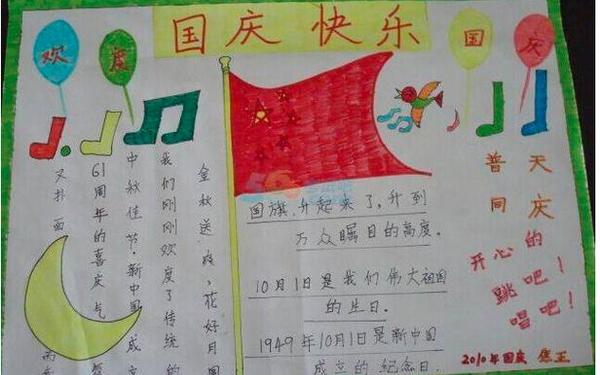 国庆 快乐
欢度
国庆
金秋送爽,花好月圆
我们刚刚欢度了传统的
中秋佳节.新中国成立
61周年的喜庆气
又扑面
国旗,升起来了,升到
万众瞩目的高度。
10月1日是我们伟大祖国
的生日。
1949年10月1日是新中国
成立的纪念日.
普天
同庆
开心的
跳吧!
唱吧!
2010年国庆